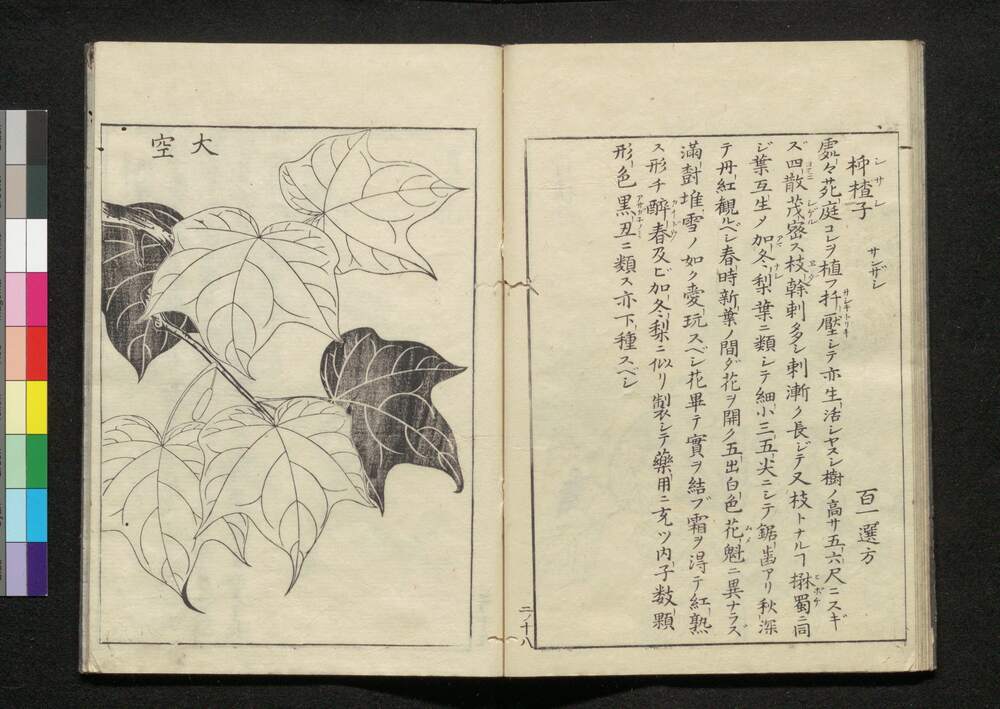 柹樝子 サンザシ 百一選方
處々苑庭コレヲ植フ扦壓シテ亦生活シヤスシ樹ノ高サ五六尺ニスギ
ズ四散茂密ス枝幹刺多シ刺漸ク長ジテ又枝トナルヿ楙蜀ニ同
ジ葉互生ノ加冬梨葉ニ類シテ細小三五尖ニシテ鋸歯アリ秋深
テ丹紅観ルベシ春時新葉ノ間ダ花ヲ開ク五出白色花魁ニ異ナラズ
滿樹堆雪ノ如ク愛玩スベシ花畢テ實ヲ結ブ霜ヲ得テ紅熟
ス形チ醉春及ビ加冬梨ニ似リ製シテ藥用ニ充ツ内子数顆
形色黒丑ニ類ス亦下種スベシ
二ノ十八
大空